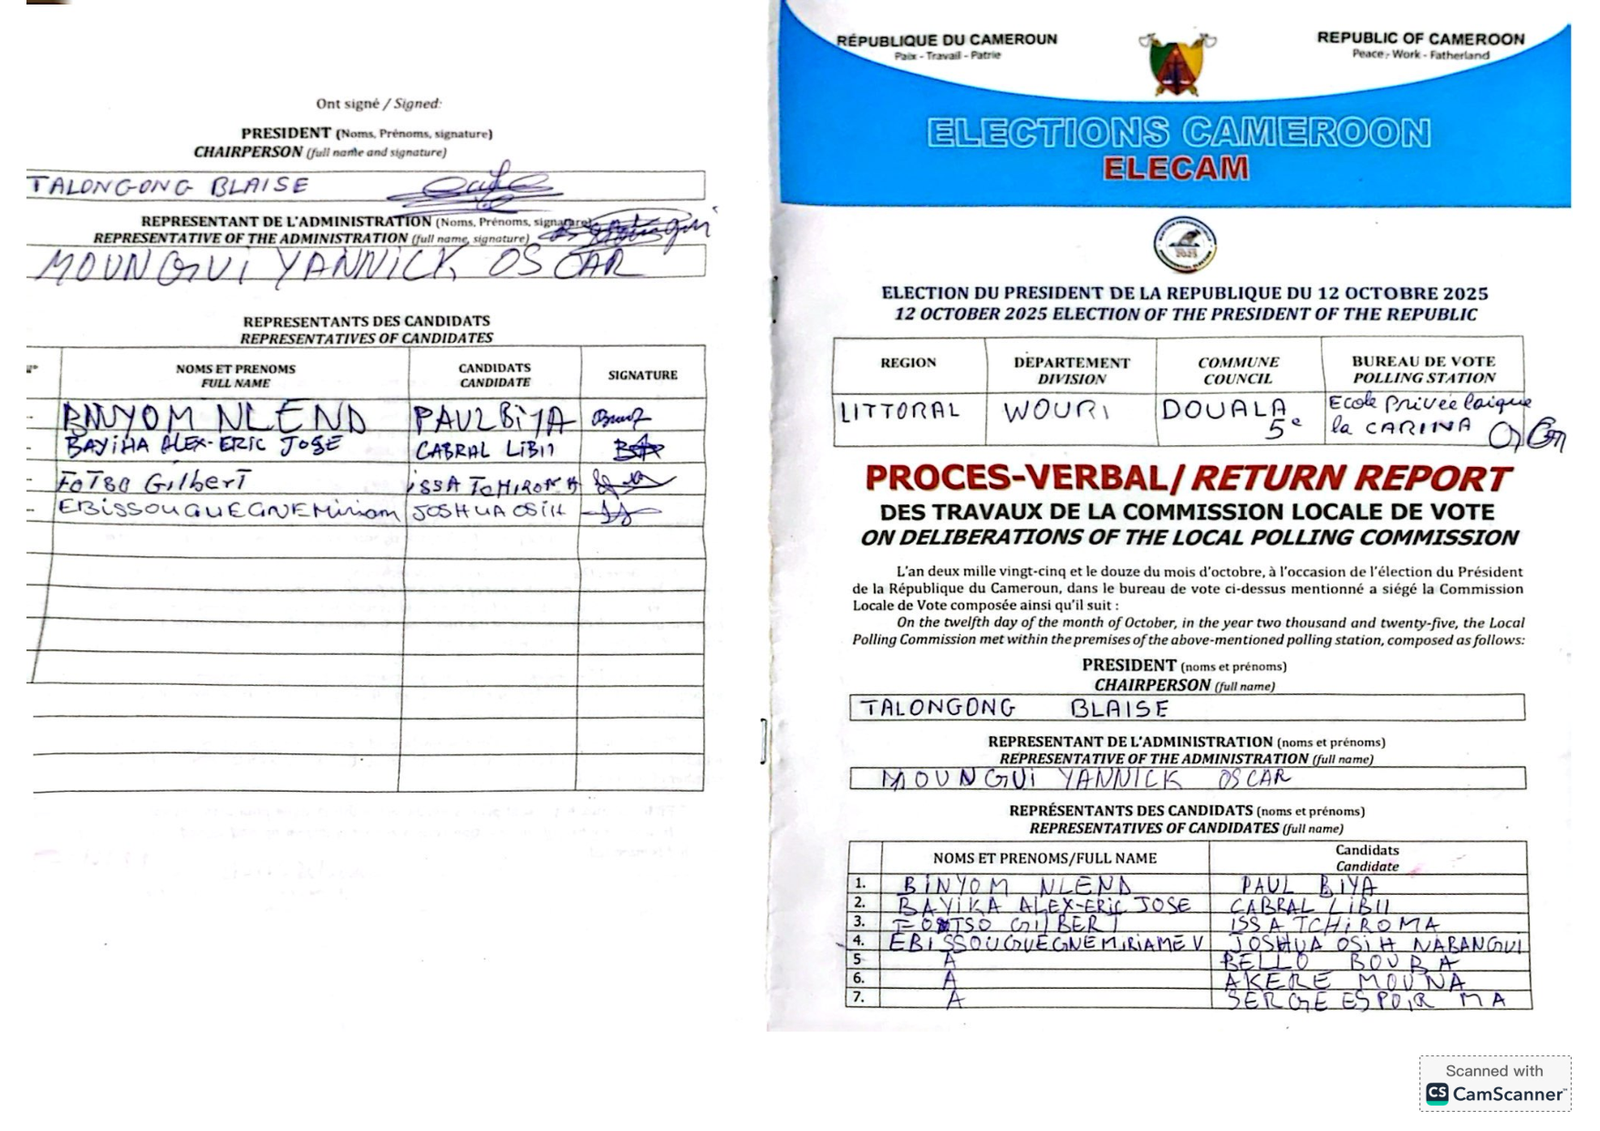 Ont signé / Signed:
PRESIDENT (Noms, Prénoms, signature)
CHAIRPERSON (full name and signature)
TALONGONG BLAISE
REPRESENTANT DE L'ADMINISTRATION (Noms, Prénoms, signature)
REPRESENTATIVE OF THE ADMINISTRATION (full name, signature)
MOUNGUI YANNICK OSCAR
REPRESENTANTS DES CANDIDATS
REPRESENTATIVES OF CANDIDATES
NOMS ET PRENOMS CANDIDATS SIGNATURE
FULL NAME CANDIDATE
BINYOM NLEND PAUL BIYA
BAYIHA ALEX-ERIC JOSE CABRAL LIBII
FOTSO GILBERT ISSA TCHIROMA
EBISSOUGUEGNEMiriam JOSHUA OSIH
RÉPUBLIQUE DU CAMEROUN
Paix - Travail - Patrie
REPUBLIC OF CAMEROON
Peace - Work - Fatherland
ELECTIONS CAMEROON
ELECAM
2025
ELECTION DU PRESIDENT DE LA REPUBLIQUE DU 12 OCTOBRE 2025
12 OCTOBER 2025 ELECTION OF THE PRESIDENT OF THE REPUBLIC
REGION DÉPARTEMENT COMMUNE BUREAU DE VOTE
DIVISION COUNCIL POLLING STATION
LITTORAL WOURI DOUALA 5e Ecole Privée laique
la CARINA
PROCES-VERBAL/ RETURN REPORT
DES TRAVAUX DE LA COMMISSION LOCALE DE VOTE
ON DELIBERATIONS OF THE LOCAL POLLING COMMISSION
L'an deux mille vingt-cinq et le douze du mois d'octobre, à l'occasion de l'élection du Président
de la République du Cameroun, dans le bureau de vote ci-dessus mentionné a siégé la Commission
Locale de Vote composée ainsi qu'il suit :
On the twelfth day of the month of October, in the year two thousand and twenty-five, the Local
Polling Commission met within the premises of the above-mentioned polling station, composed as follows:
PRESIDENT (noms et prénoms)
CHAIRPERSON (full name)
TALONGONG BLAISE
REPRESENTANT DE L'ADMINISTRATION (noms et prénoms)
REPRESENTATIVE OF THE ADMINISTRATION (full name)
MOUNGUI YANNICK OSCAR
REPRÉSENTANTS DES CANDIDATS (noms et prénoms)
REPRESENTATIVES OF CANDIDATES (full name)
NOMS ET PRENOMS/FULL NAME Candidats
Candidate
1. BINYOM NLEND PAUL BIYA
2. BAYIKA ALEX-ERIC JOSE CABRAL LIBII
3. FOTSO GILBERT ISSA TCHIROMA
4. EBISSOUGUEGNEMIRIAME V JOSHUA OSIH NABANGUI
5 A BELLO BOUBA
6. A AKERE MOUNA
7. A SERGE ESPOIR MA
Scanned with
CS CamScanner